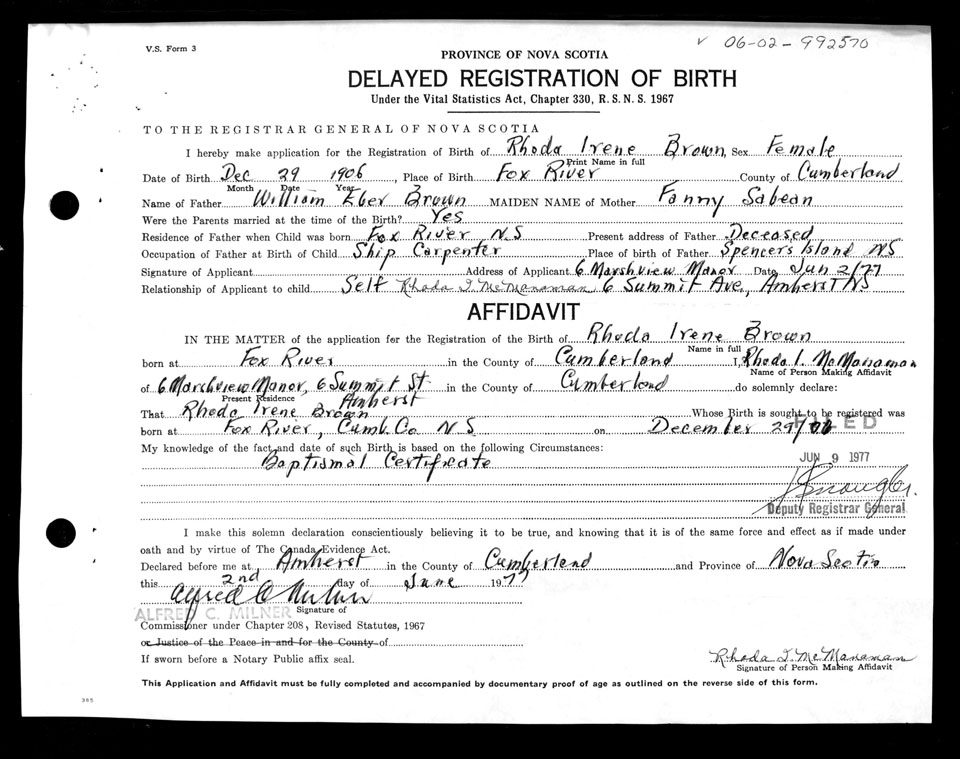 V.S. Form 3
✓ 06-02-992570
PROVINCE OF NOVA SCOTIA
DELAYED REGISTRATION OF BIRTH
Under the Vital Statistics Act, Chapter 330, R.S.N.S. 1967
TO THE REGISTRAR GENERAL OF NOVA SCOTIA
I hereby make application for the Registration of Birth of Rhoda Irene Brown, Sex Female
Print Name in full
Date of Birth Dec 29 1906, Place of Birth Fox River County of Cumberland
Month Date Year
Name of Father William Eber Brown MAIDEN NAME of Mother Fanny Sabean
Were the Parents married at the time of the Birth? Yes
Residence of Father when Child was born Fox River N.S Present address of Father Deceased
Occupation of Father at Birth of Child Ship Carpenter Place of birth of Father Spencers Island NS
Signature of Applicant Address of Applicant 6 Marshview Manor Date Jun 2/77
Relationship of Applicant to child Self Rhoda I. McManaman 6 Summit Ave., Amherst NS
AFFIDAVIT
IN THE MATTER of the application for the Registration of the Birth of Rhoda Irene Brown
Name in full
born at Fox River in the County of Cumberland I, Rhoda I. McManaman
Name of Person Making Affidavit
of 6 Marshview Manor, 6 Summit St in the County of Cumberland do solemnly declare:
Present Residence Amherst
That Rhoda Irene Brown Whose Birth is sought to be registered was
born at Fox River, Cumb. Co N S on December 29/06
FILED
My knowledge of the fact and date of such Birth is based on the following Circumstances:
Baptismal Certificate
JUN 9 1977
Deputy Registrar General
I make this solemn declaration conscientiously believing it to be true, and knowing that it is of the same force and effect as if made under
oath and by virtue of The Canada Evidence Act.
Declared before me at Amherst in the County of Cumberland and Province of Nova Scotia
this 2nd day of June 1977
Alfred C Milner
ALFRED C. MILNER
Signature of
Commissioner under Chapter 208, Revised Statutes, 1967
or Justice of the Peace in and for the County of
If sworn before a Notary Public affix seal.
Rhoda I. McManaman
Signature of Person Making Affidavit
This Application and Affidavit must be fully completed and accompanied by documentary proof of age as outlined on the reverse side of this form.